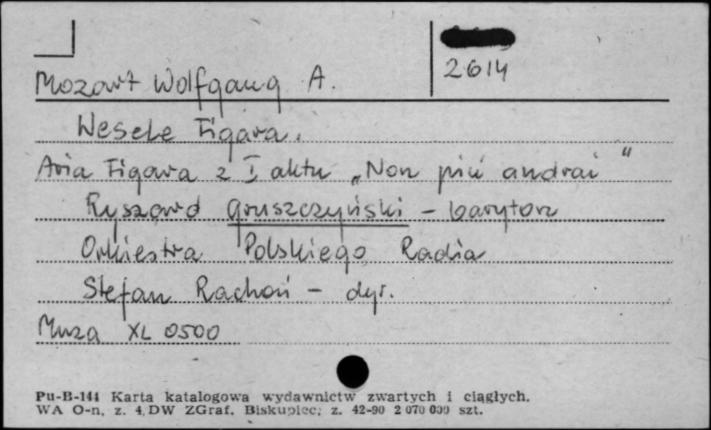 2614
Mozart Wolfgang A.
Wesele Figara.
Aria Figara z I aktu „Non più andrai"
Ryszard Gruszczyński - baryton
Orkiestra Polskiego Radia
Stefan Rachoń - dyr.
Muza XL 0500
Pu-B-144 Karta katalogowa wydawnictw zwartych i ciągłych.
WA O-n. z. 4. DW ZGraf. Biskupiec; z. 42-90 2 070 000 szt.